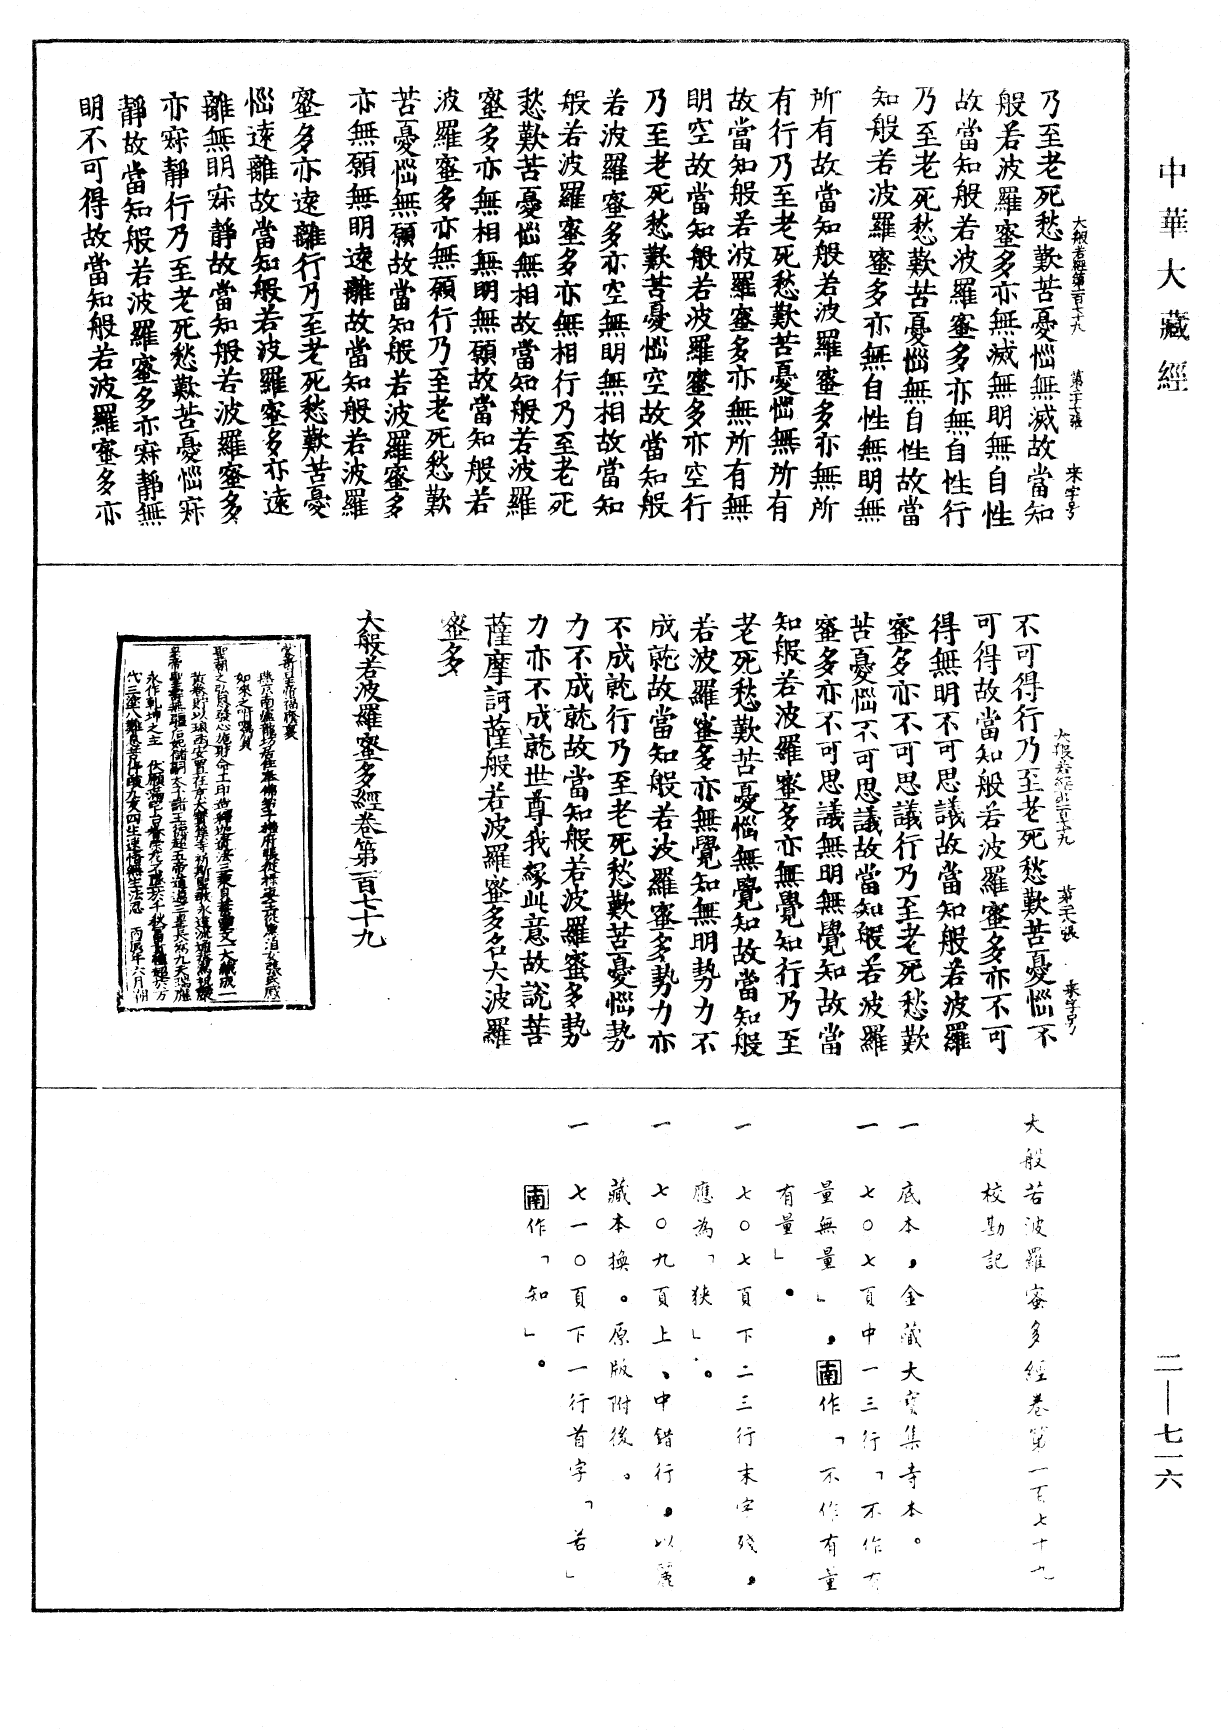 中華大藏經
大般若經第一百七十九 第二十七張 來字号
乃至老死愁歎苦憂惱無滅故當知
般若波羅蜜多亦無滅無明無自性
故當知般若波羅蜜多亦無自性行
乃至老死愁歎苦憂惱無自性故當
知般若波羅蜜多亦無自性無明無
所有故當知般若波羅蜜多亦無所
有行乃至老死愁歎苦憂惱無所有
故當知般若波羅蜜多亦無所有無
明空故當知般若波羅蜜多亦空行
乃至老死愁歎苦憂惱空故當知般
若波羅蜜多亦空無明無相故當知
般若波羅蜜多亦無相行乃至老死
愁歎苦憂惱無相故當知般若波羅
蜜多亦無相無明無願故當知般若
波羅蜜多亦無願行乃至老死愁歎
苦憂惱無願故當知般若波羅蜜多
亦無願無明遠離故當知般若波羅
蜜多亦遠離行乃至老死愁歎苦憂
惱遠離故當知般若波羅蜜多亦遠
離無明寂靜故當知般若波羅蜜多
亦寂靜行乃至老死愁歎苦憂惱寂
靜故當知般若波羅蜜多亦寂靜無
明不可得故當知般若波羅蜜多亦
大般若經第一百七十九 第二十八張 來字号
不可得行乃至老死愁歎苦憂惱不
可得故當知般若波羅蜜多亦不可
得無明不可思議故當知般若波羅
蜜多亦不可思議行乃至老死愁歎
苦憂惱不可思議故當知般若波羅
蜜多亦不可思議無明無覺知故當
知般若波羅蜜多亦無覺知行乃至
老死愁歎苦憂惱無覺知故當知般
若波羅蜜多亦無覺知無明勢力不
成就故當知般若波羅蜜多勢力亦
不成就行乃至老死愁歎苦憂惱勢
力不成就故當知般若波羅蜜多勢
力亦不成就世尊我緣此意故說菩
薩摩訶薩般若波羅蜜多名大波羅
蜜多
大般若波羅蜜多經卷第一百七十九
如來之
聖朝之弘
永作乾坤之主 伏願
丙辰年六月朔
大般若波羅蜜多經卷第一百七十九
校勘記
一 底本，金藏大寶集寺本。
一 七〇七頁中一三行「不作有
量無量」，南作「不作有量
有量」。
一 七〇七頁下二三行末字殘，
應為「狹」。
一 七〇九頁上、中錯行，以麗
藏本換。原版附後。
一 七一〇頁下一行首字「若」
南作「知」。
二—七一六